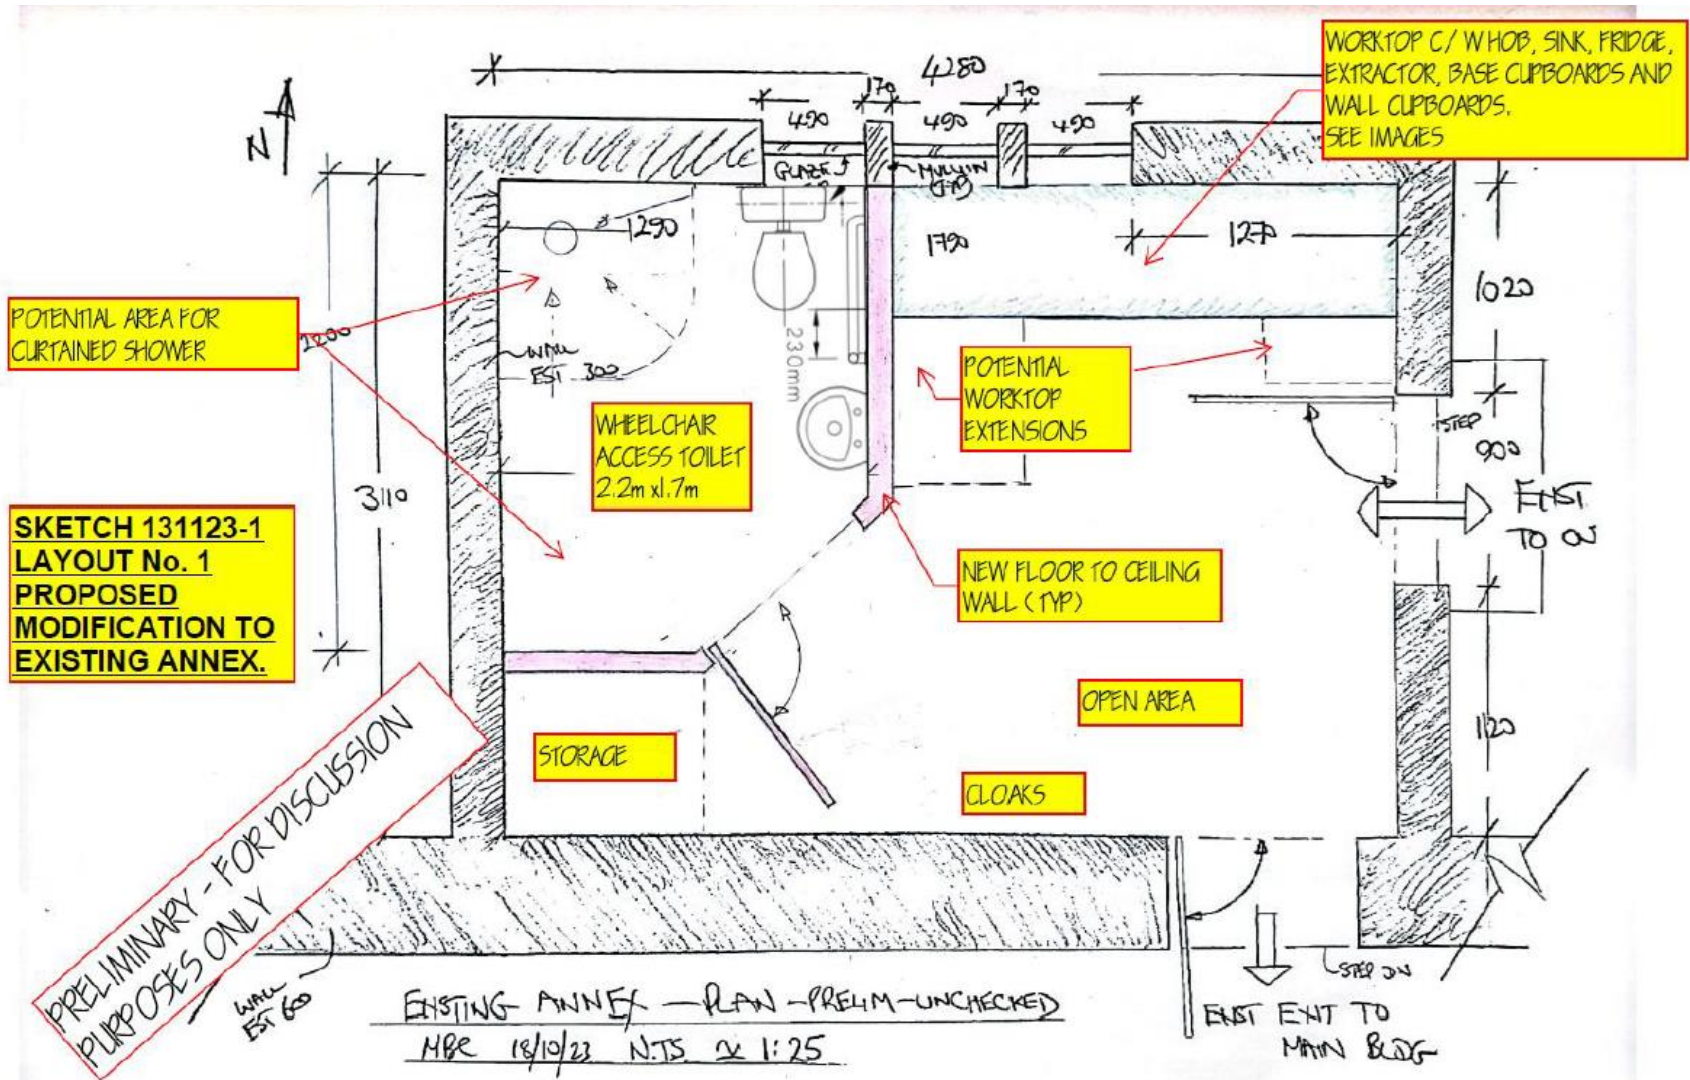 WORKTOP C/W HOB, SINK, FRIDGE,
EXTRACTOR, BASE CUPBOARDS AND
WALL CUPBOARDS.
SEE IMAGES
N
4280
170
170
490
490
490
GLAZE
MULLION
(TYP)
1290
1790
1270
1020
POTENTIAL AREA FOR
CURTAINED SHOWER
2200
WALL
EST 300
230mm
POTENTIAL
WORKTOP
EXTENSIONS
WHEELCHAIR
ACCESS TOILET
2.2m x1.7m
STEP
900
3110
EXIST
TO
SKETCH 131123-1
LAYOUT No. 1
PROPOSED
MODIFICATION TO
EXISTING ANNEX.
NEW FLOOR TO CEILING
WALL (TYP)
OPEN AREA
1120
STORAGE
CLOAKS
PRELIMINARY - FOR DISCUSSION
PURPOSES ONLY
WALL
EST 60
STEP DN
EXISTING ANNEX - PLAN - PRELIM - UNCHECKED
18/10/23 N.T.S 1:25
EXIST EXIT TO
MAIN BLDG